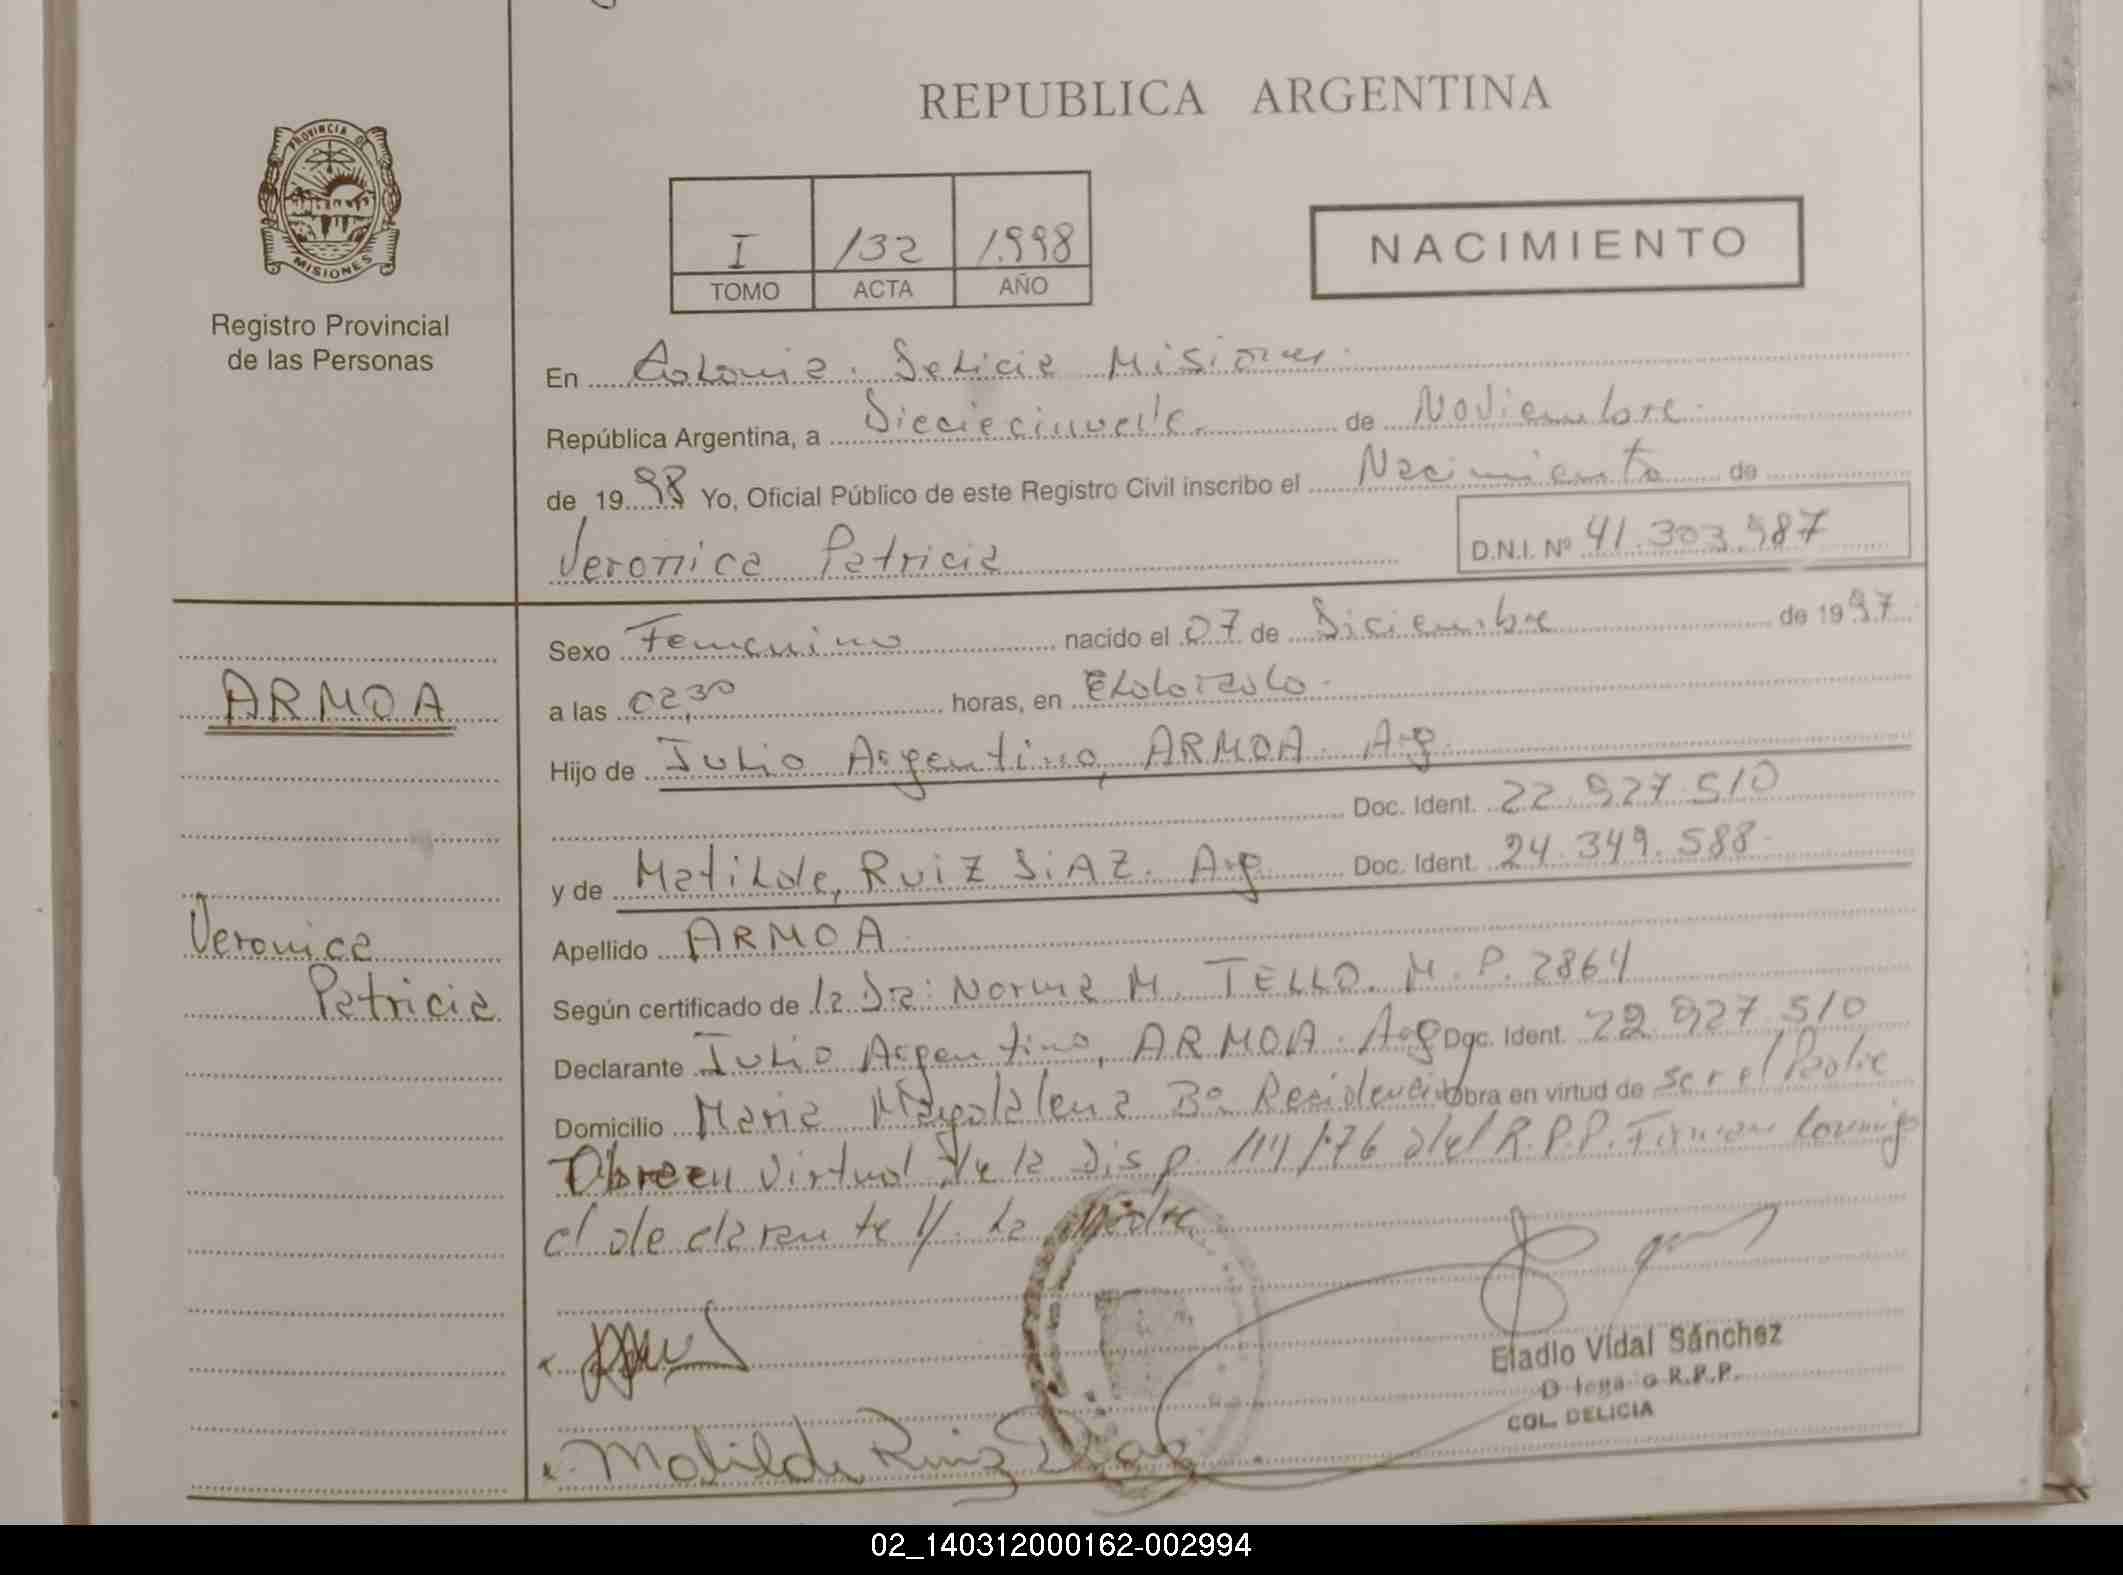 REPUBLICA ARGENTINA
PROVINCIA DE
MISIONES
Registro Provincial
de las Personas
I 132 1.998
TOMO ACTA AÑO
NACIMIENTO
En Colonia Delicia Misiones
República Argentina, a Dieciecinueve de Noviembre
de 1998 Yo, Oficial Público de este Registro Civil inscribo el Nacimiento de
Veronica Patricia D.N.I. Nº 41.303.987
ARMOA
Veronica
Patricia
Sexo Femenino nacido el 07 de Diciembre de 1997
a las 02,30 horas, en Eldorado
Hijo de Julio Argentino, ARMOA. Arg.
Doc. Ident. 22.927.510
y de Matilde, RUIZ DiAZ. Arg Doc. Ident. 24.349.588
Apellido ARMOA
Según certificado de la Dra: Norma M. TELLO. M.P. 2864
Declarante Julio Argentino, ARMOA. Arg Doc. Ident. 22.927.510
Domicilio Maria Magdalena 3º Residencia Obra en virtud de ser el Padre
Obra en virtud de la Disp. 111/76 del R.P.P. Firman conmigo
el declarante y la Madre
Matilde Ruiz Diaz
Eladio Vidal Sánchez
R.P.P.
COL. DELICIA
02_140312000162-002994